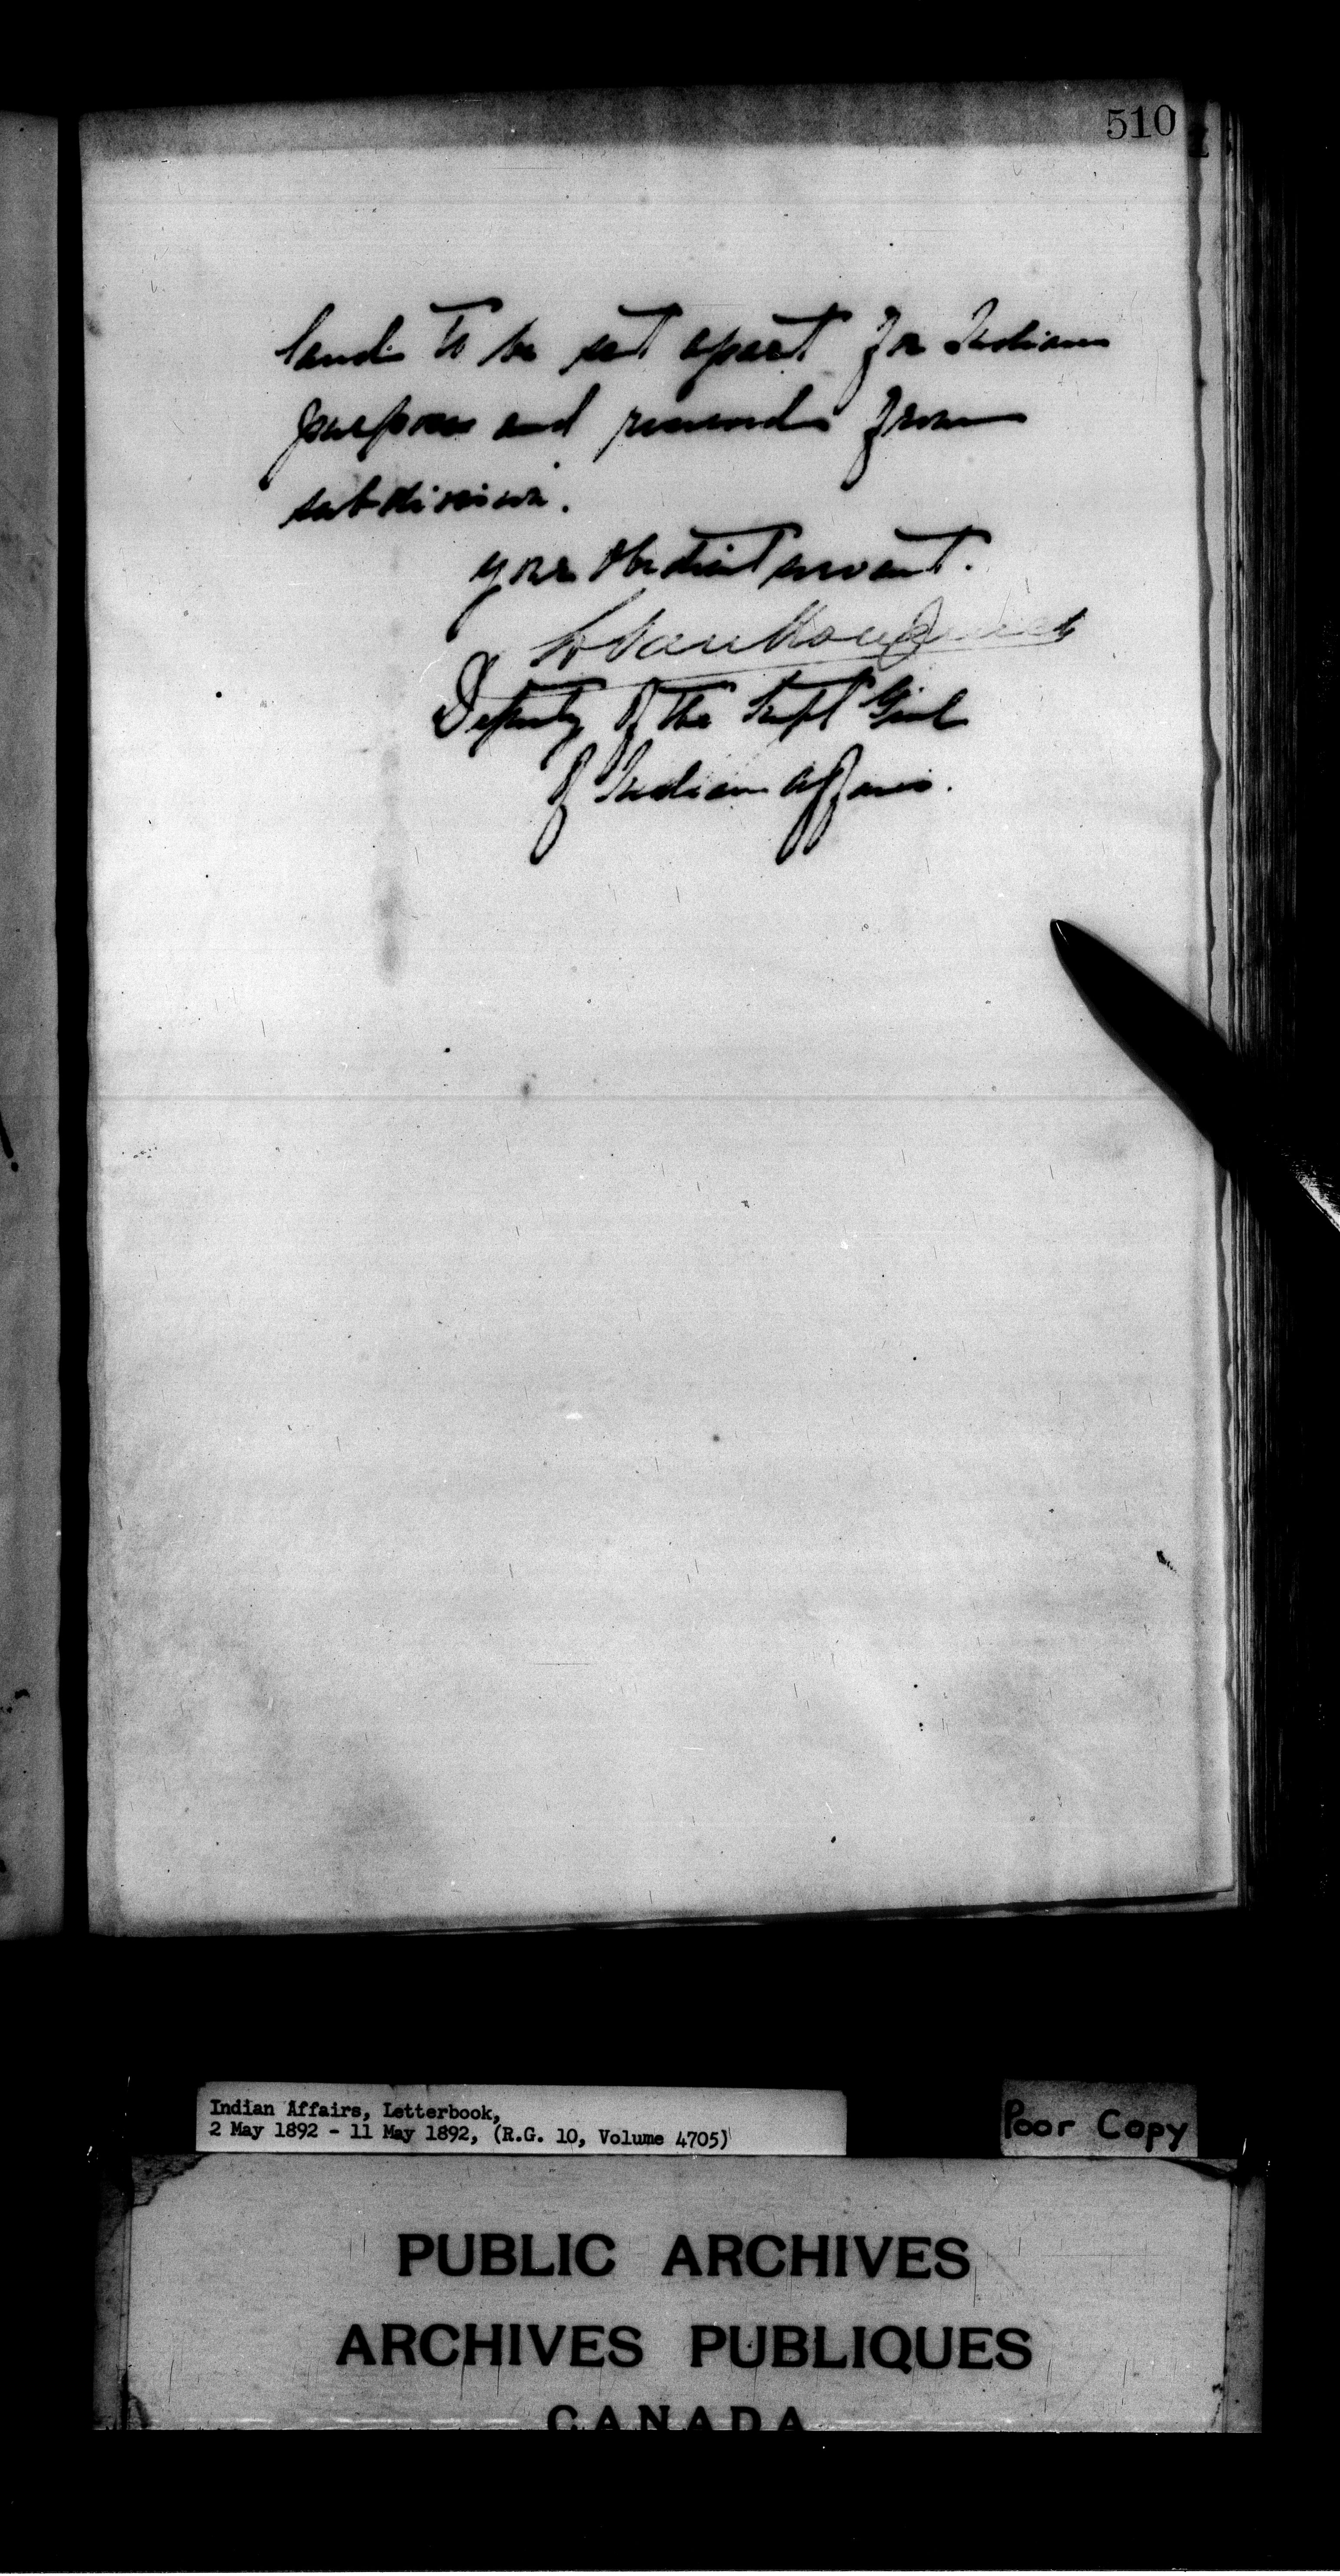 510
lands to be set apart for Indian
purposes and reserved from
subdivision.
Your obedient servant.
L Vankoughnet
Deputy of the Supt Genl
of Indian Affairs.
Indian Affairs, Letterbook,
2 May 1892 - 11 May 1892, (R.G. 10, Volume 4705)
Poor Copy
PUBLIC ARCHIVES
ARCHIVES PUBLIQUES
CANADA